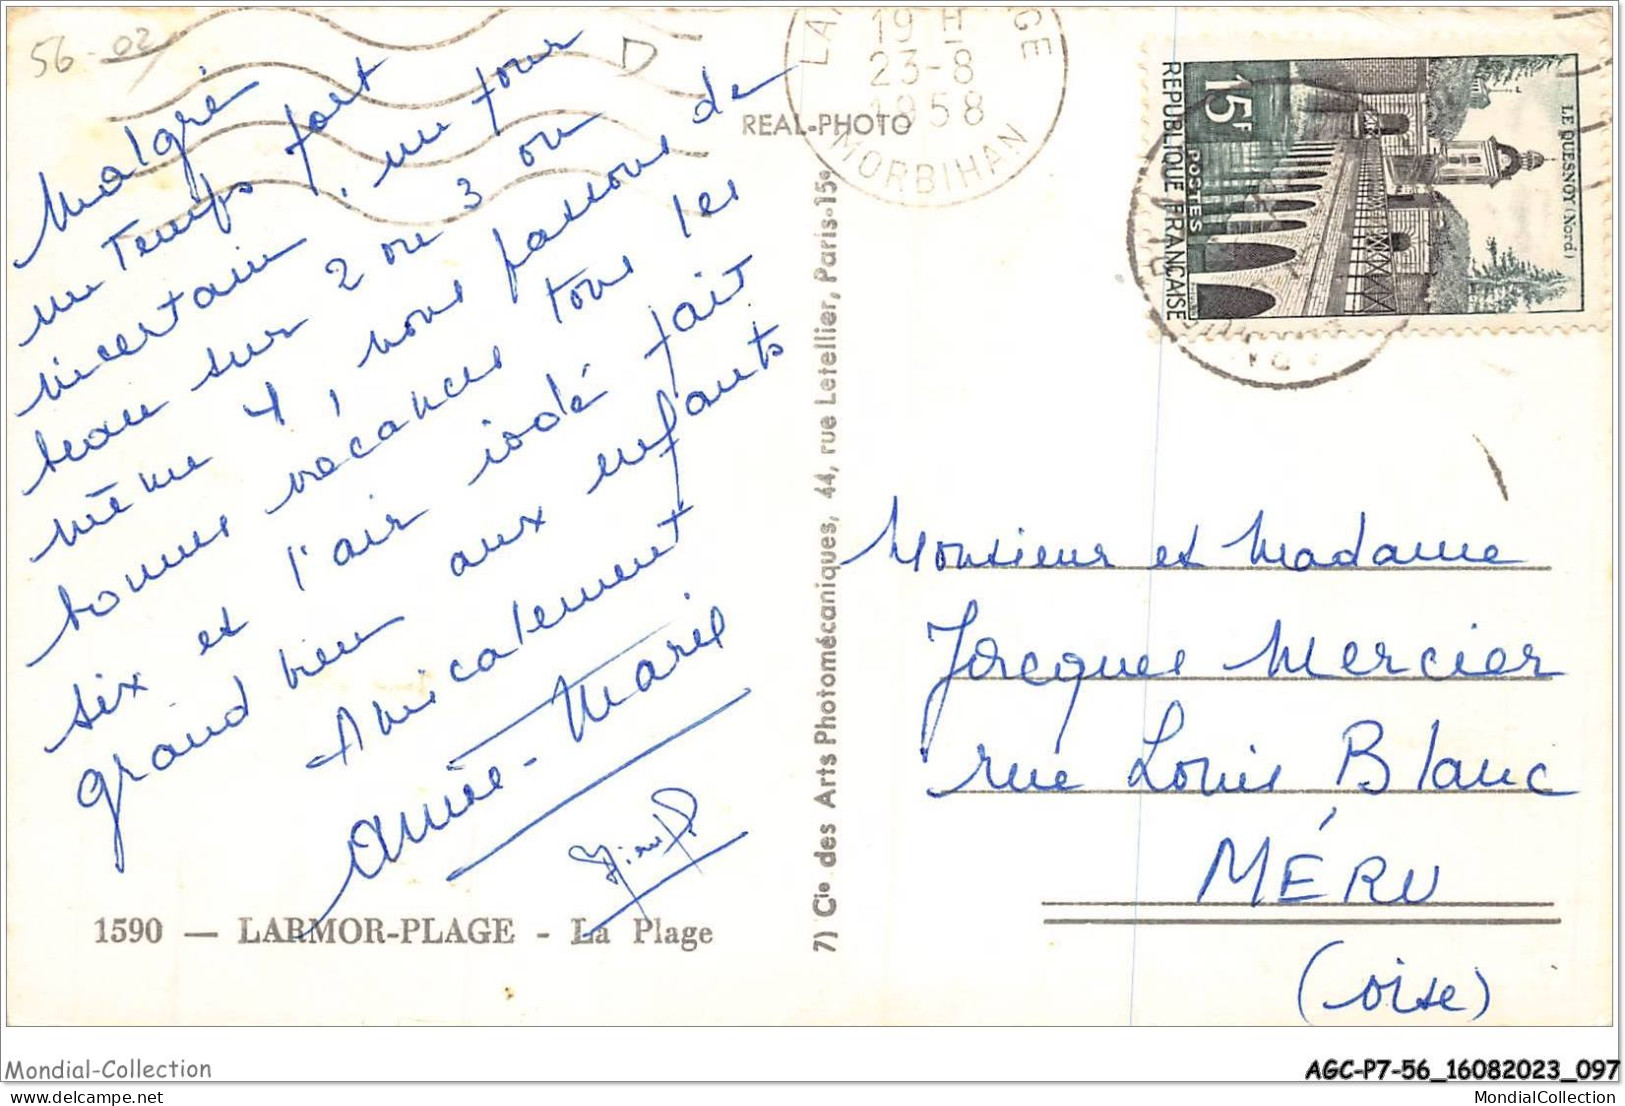 56-02
D
Malgré
un temps fort
incertain, un jour
beau sur 2 ou 3 ou
même 4, nous passons de
bonnes vacances tous les
six et l'air iodé fait
grand bien aux enfants
Amicalement
Année-Marie
1590 — LARMOR-PLAGE - La Plage
REAL-PHOTO
7) Cie des Arts Photomécaniques, 44, rue Letellier, Paris-15e
19 H
23-8
1958
MORBIHAN
15F
POSTES
REPUBLIQUE FRANÇAISE
LE QUESNOY (Nord)
Monsieur et Madame
Jacques Mercier
rue Louis Blanc
MÉRU
(Oise)
Mondial-Collection
AGC-P7-56_16082023_097
MondialCollection